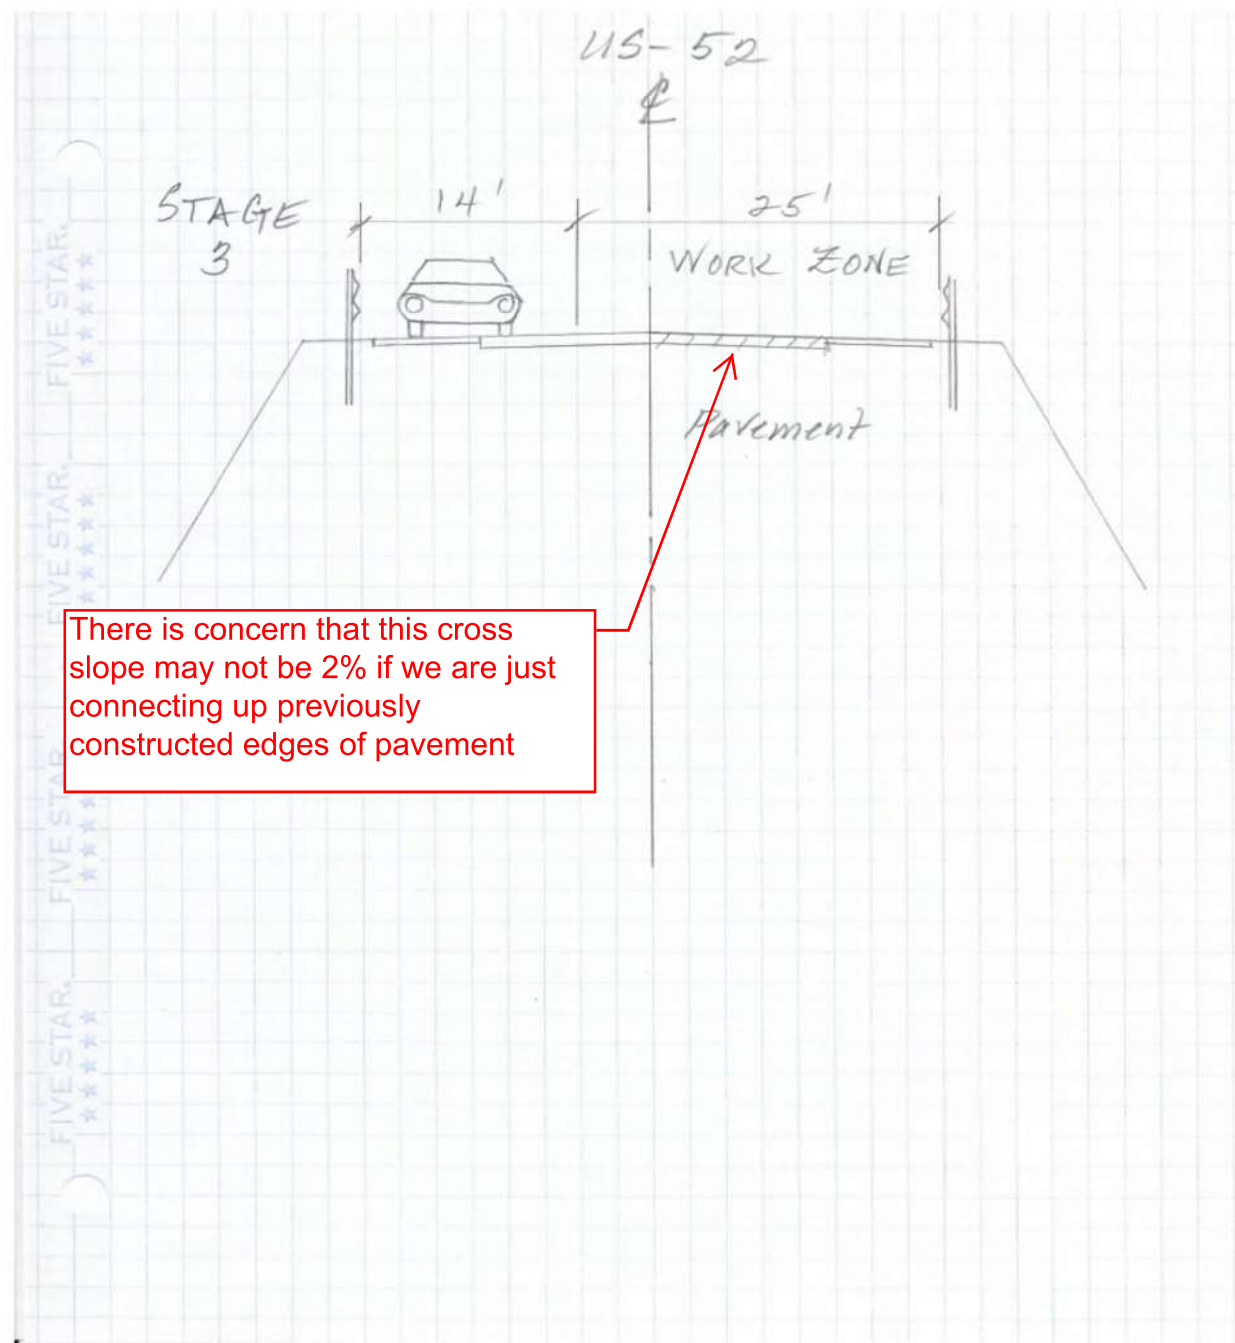 US-52
℄
STAGE
3
14'
25'
WORK ZONE
Pavement
There is concern that this cross
slope may not be 2% if we are just
connecting up previously
constructed edges of pavement
FIVE STAR.
FIVE STAR.
FIVE STAR
FIVE STAR.